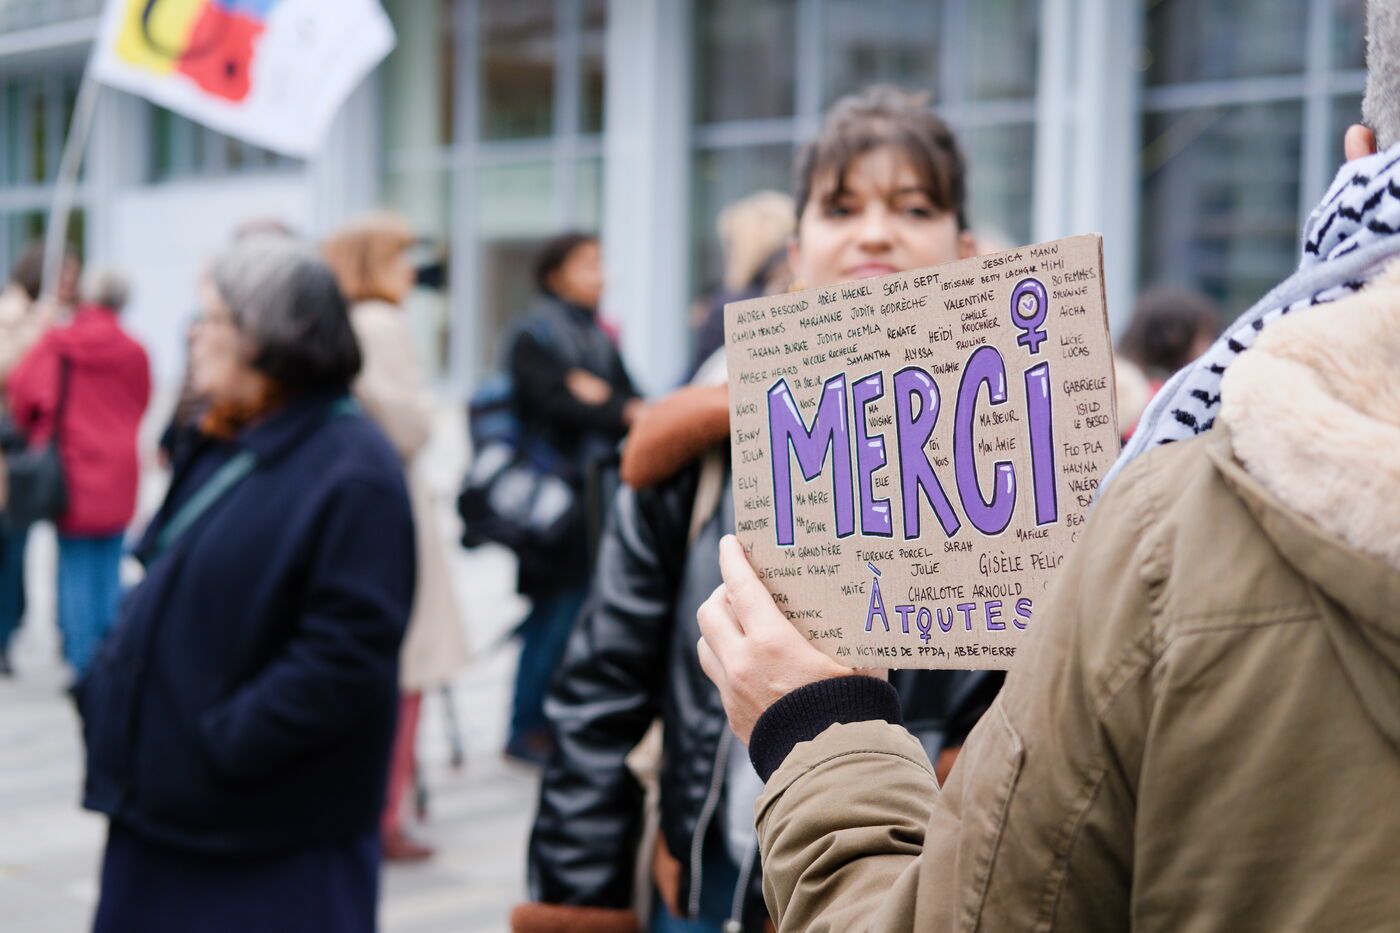 JESSICA MANN
ANDREA BESCOND ADÈLE HAENEL SOFIA SEPT. IBTISSAME BETTY LACHGAR MIMI
80 FEMMES
CAMILA MENDES MARIANNE JUDITH GODRÈCHE VALENTINE
SYLVAINE
TARANA BURKE JUDITH CHEMLA RENATE HEÏDI CAMILLE KOUCHNER
AÏCHA
AMBER HEARD NICOLLE ROCHELLE SAMANTHA ALYSSA PAULINE
TA SOEUR
TONAMIE
LUCIE
LUCAS
KAORI
NOUS
MA VOISINE
MA SOEUR
GABRIELLE
MERCi
JENNY
TOI
VOUS
MON AMIE
ISILD
LE BESCO
JULIA
FLO PLA
ELLY
ELLE
HALYNA
HÉLÈNE
MA MÈRE
CHARLOTTE
MA COPINE
MA FILLE
MA GRAND MÈRE FLORENCE PORCEL SARAH
STÉPHANIE KHAYAT JULIE GISÈLE PÉLIC
MAÏTÉ CHARLOTTE ARNOULD
À TOUTES
DEVYNCK
DELARUE
AUX VICTIMES DE PPDA, ABBÉ PIERRE